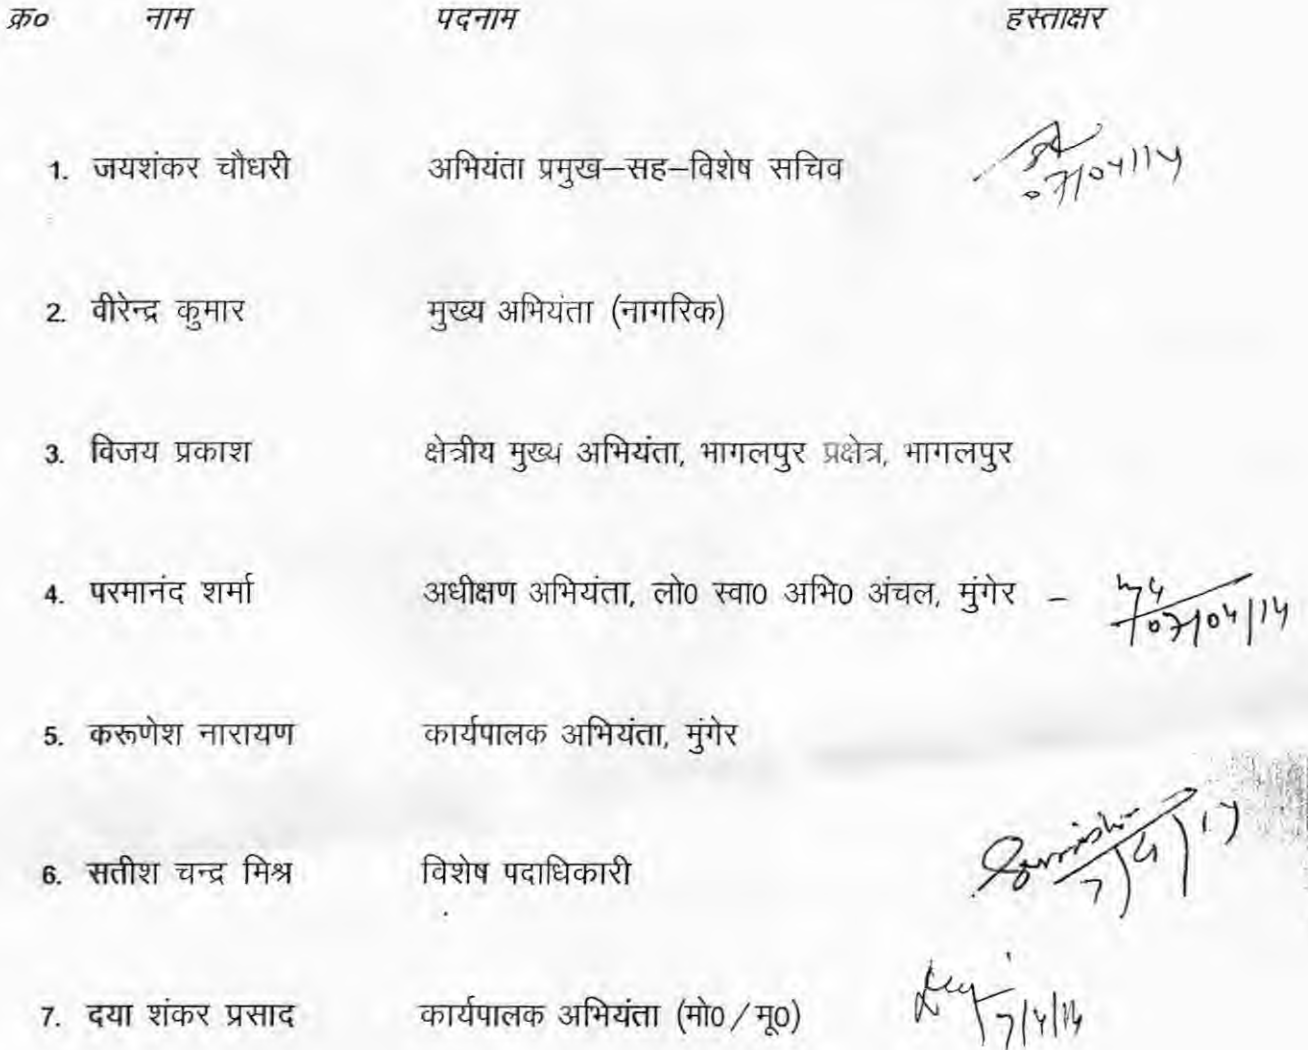 क्र० नाम पदनाम हस्ताक्षर
1. जयशंकर चौधरी अभियंता प्रमुख–सह–विशेष सचिव 07/04/14
2. वीरेन्द्र कुमार मुख्य अभियंता (नागरिक)
3. विजय प्रकाश क्षेत्रीय मुख्य अभियंता, भागलपुर प्रक्षेत्र, भागलपुर
4. परमानंद शर्मा अधीक्षण अभियंता, लो0 स्वा0 अभि0 अंचल, मुंगेर – 07/04/14
5. करूणेश नारायण कार्यपालक अभियंता, मुंगेर
6. सतीश चन्द्र मिश्र विशेष पदाधिकारी 7/4/14
7. दया शंकर प्रसाद कार्यपालक अभियंता (मो0/मू0) 7/4/14